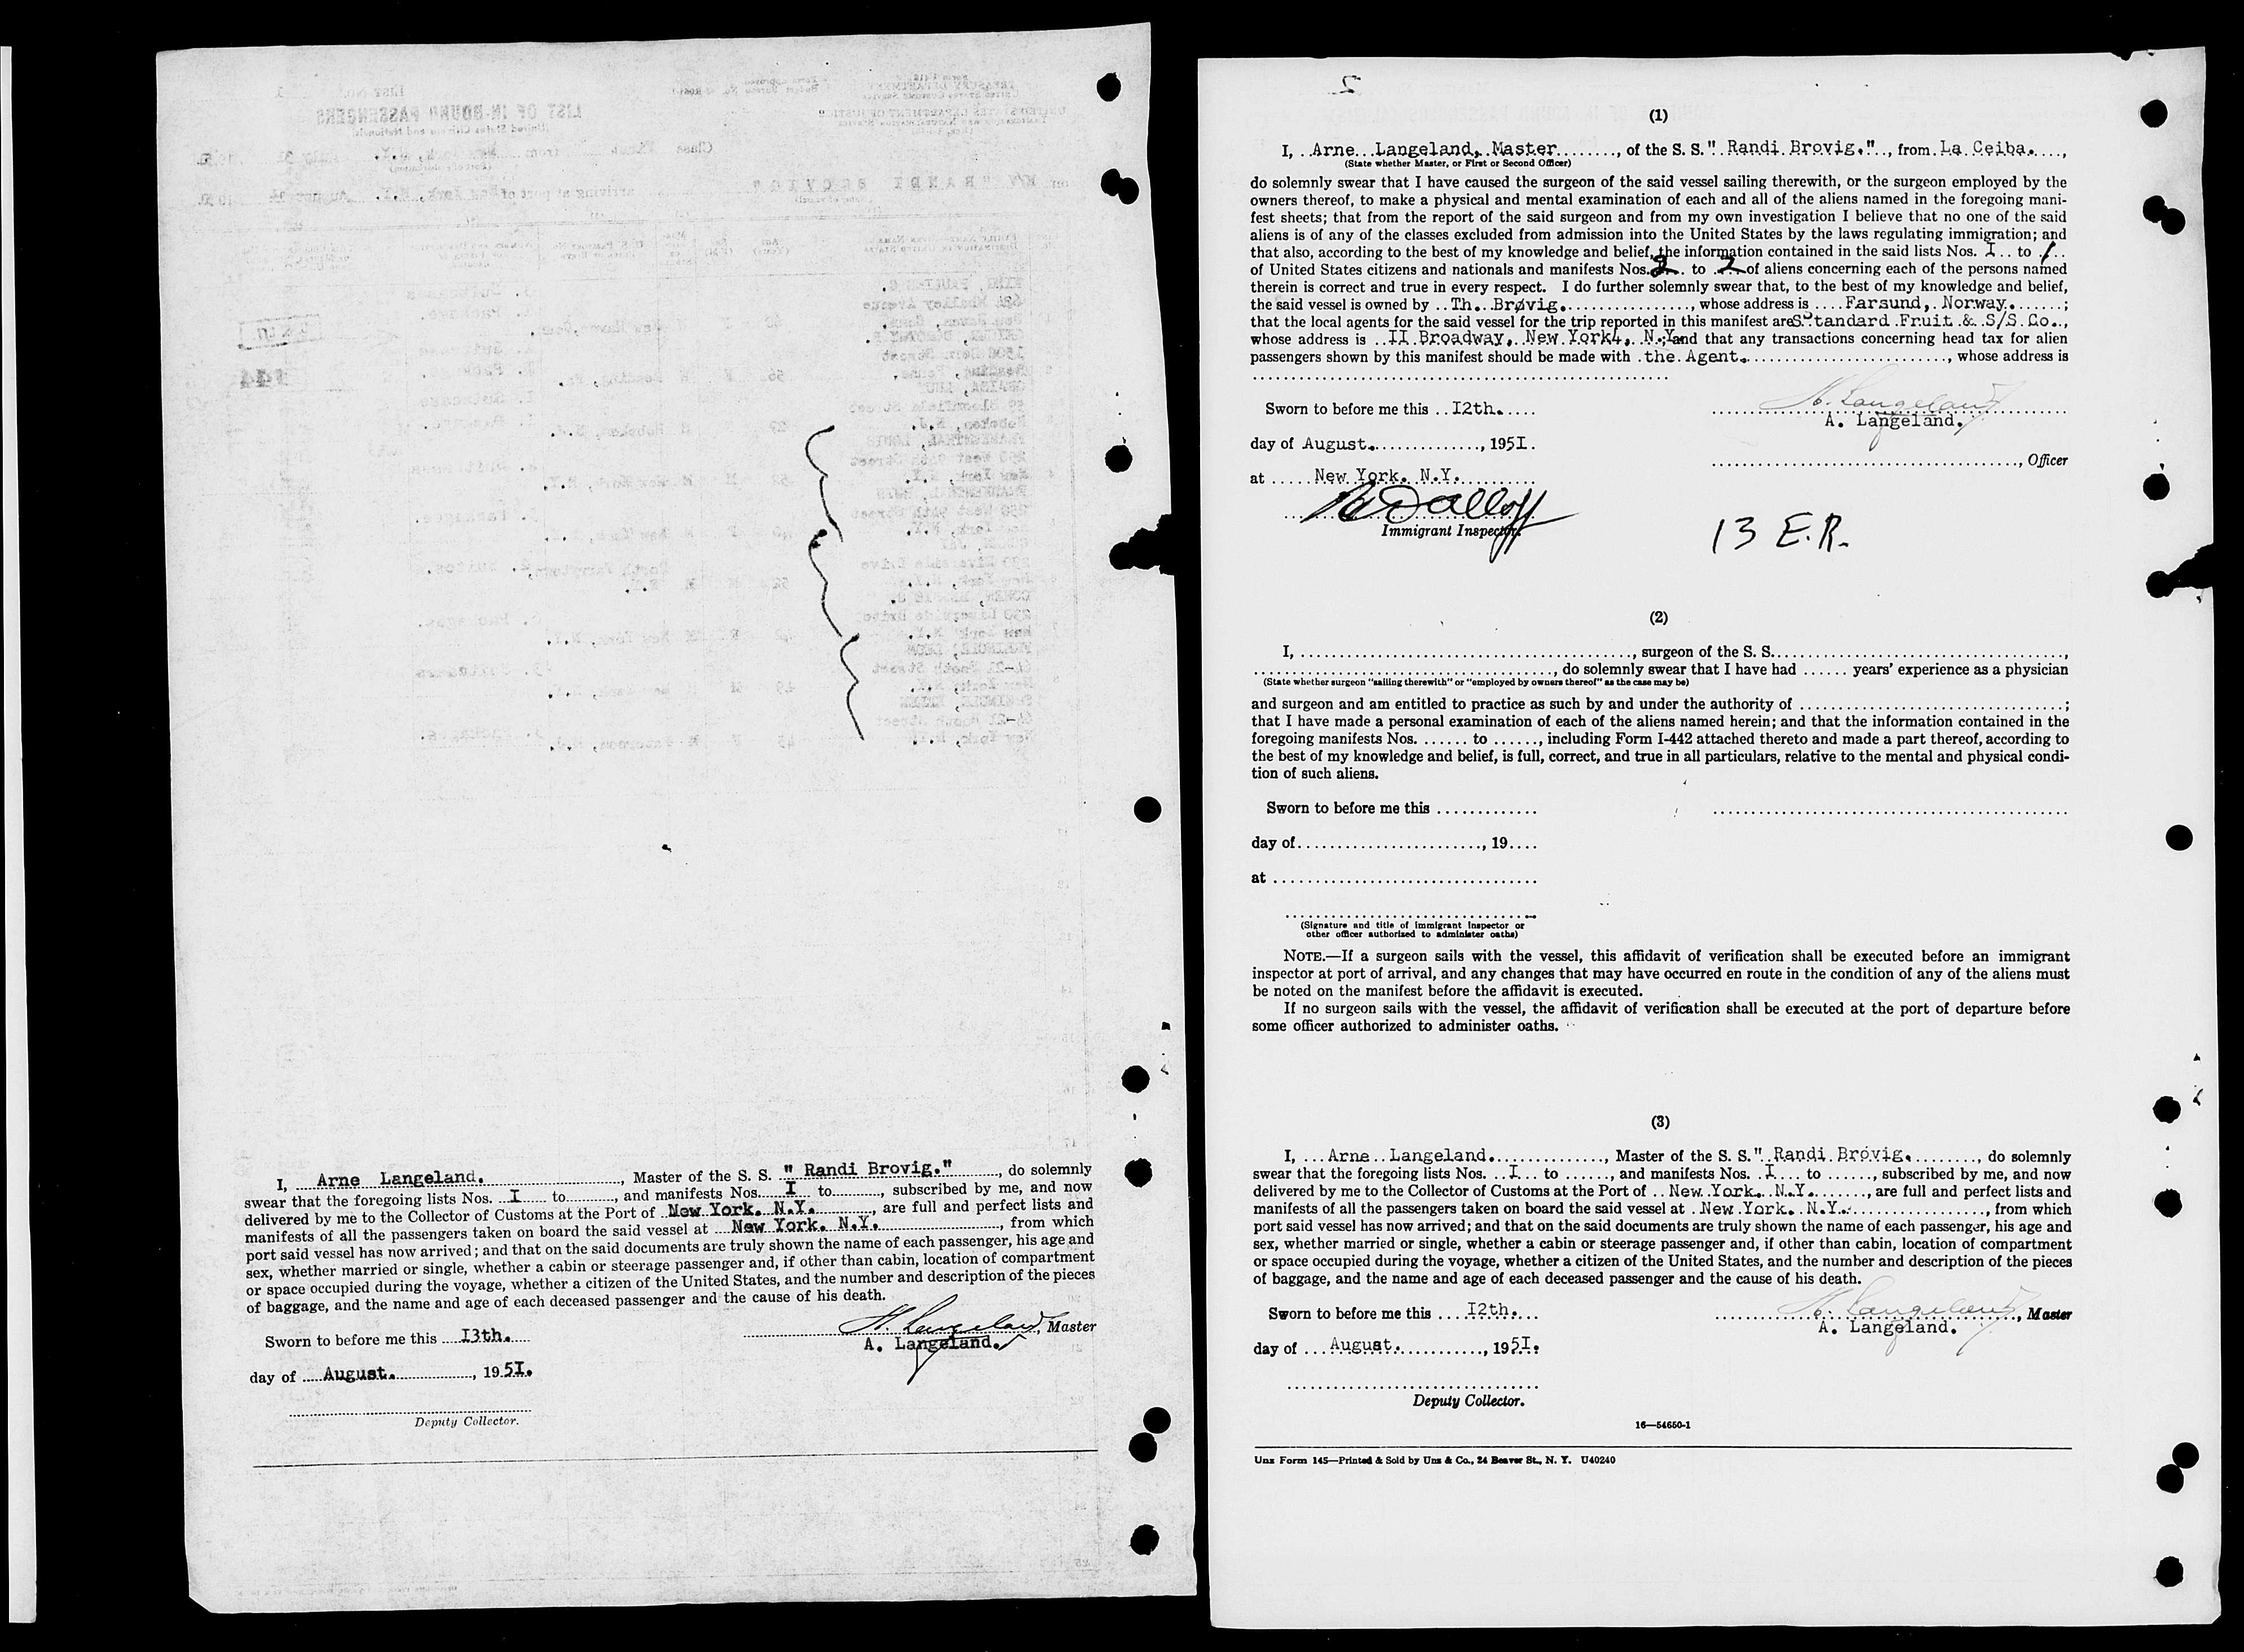 I, Arne Langeland. , Master of the S. S. " Randi Brovig." , do solemnly
swear that the foregoing lists Nos. I to , and manifests Nos. I to , subscribed by me, and now
delivered by me to the Collector of Customs at the Port of New York. N.Y. , are full and perfect lists and
manifests of all the passengers taken on board the said vessel at New York. N.Y. , from which
port said vessel has now arrived; and that on the said documents are truly shown the name of each passenger, his age and
sex, whether married or single, whether a cabin or steerage passenger and, if other than cabin, location of compartment
or space occupied during the voyage, whether a citizen of the United States, and the number and description of the pieces
of baggage, and the name and age of each deceased passenger and the cause of his death.
Sworn to before me this I3th.
A. Langeland , Master
A. Langeland.
day of August. , 1951.
Deputy Collector.
2
(1)
I, Arne Langeland, Master , of the S. S. " Randi Brovig." , from La Ceiba. ,
(State whether Master, or First or Second Officer)
do solemnly swear that I have caused the surgeon of the said vessel sailing therewith, or the surgeon employed by the
owners thereof, to make a physical and mental examination of each and all of the aliens named in the foregoing mani-
fest sheets; that from the report of the said surgeon and from my own investigation I believe that no one of the said
aliens is of any of the classes excluded from admission into the United States by the laws regulating immigration; and
that also, according to the best of my knowledge and belief, the information contained in the said lists Nos. I to 1
of United States citizens and nationals and manifests Nos. 2 to 2 of aliens concerning each of the persons named
therein is correct and true in every respect. I do further solemnly swear that, to the best of my knowledge and belief,
the said vessel is owned by Th. Brøvig. , whose address is Farsund, Norway. ;
that the local agents for the said vessel for the trip reported in this manifest are Standard Fruit & S/S Co. ,
whose address is II Broadway, New York4, N.Y ; and that any transactions concerning head tax for alien
passengers shown by this manifest should be made with the Agent. , whose address is
Sworn to before me this I2th.
A. Langeland
A. Langeland.
day of August. , 195I.
, Officer
at New York. N.Y.
Immigrant Inspector.
13 E.R.
(2)
I, , surgeon of the S. S. ,
, do solemnly swear that I have had years' experience as a physician
(State whether surgeon "sailing therewith" or "employed by owners thereof" as the case may be)
and surgeon and am entitled to practice as such by and under the authority of ;
that I have made a personal examination of each of the aliens named herein; and that the information contained in the
foregoing manifests Nos. to , including Form I-442 attached thereto and made a part thereof, according to
the best of my knowledge and belief, is full, correct, and true in all particulars, relative to the mental and physical condi-
tion of such aliens.
Sworn to before me this
day of , 19
at
(Signature and title of immigrant inspector or
other officer authorized to administer oaths)
NOTE.—If a surgeon sails with the vessel, this affidavit of verification shall be executed before an immigrant
inspector at port of arrival, and any changes that may have occurred en route in the condition of any of the aliens must
be noted on the manifest before the affidavit is executed.
If no surgeon sails with the vessel, the affidavit of verification shall be executed at the port of departure before
some officer authorized to administer oaths.
(3)
I, Arne Langeland. , Master of the S. S. " Randi Brøvig. , do solemnly
swear that the foregoing lists Nos. I to , and manifests Nos. I to , subscribed by me, and now
delivered by me to the Collector of Customs at the Port of New York. N.Y. , are full and perfect lists and
manifests of all the passengers taken on board the said vessel at New York. N.Y. , from which
port said vessel has now arrived; and that on the said documents are truly shown the name of each passenger, his age and
sex, whether married or single, whether a cabin or steerage passenger and, if other than cabin, location of compartment
or space occupied during the voyage, whether a citizen of the United States, and the number and description of the pieces
of baggage, and the name and age of each deceased passenger and the cause of his death.
Sworn to before me this I2th.
A. Langeland , Master
A. Langeland.
day of August. , 195I.
Deputy Collector.
16—54650-1
Unz Form 145—Printed & Sold by Unz & Co., 24 Beaver St., N. Y. U40240